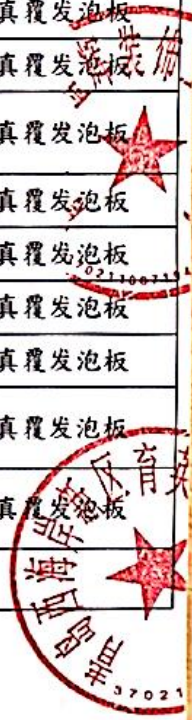 真覆发泡板
真覆发泡板
真覆发泡板
真覆发泡板
真覆发泡板
真覆发泡板
真覆发泡板
真覆发泡板
真覆发泡板
青岛西海岸新区育英
37021